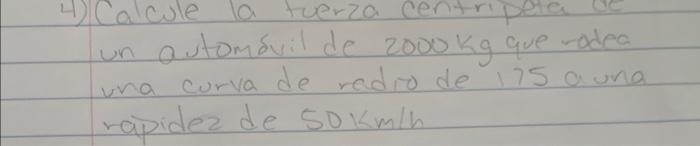 4) Calcule la fuerza centripeta de
un automóvil de 2000 Kg que rodea
una curva de radio de 175 a una
rapidez de 50 Km/h